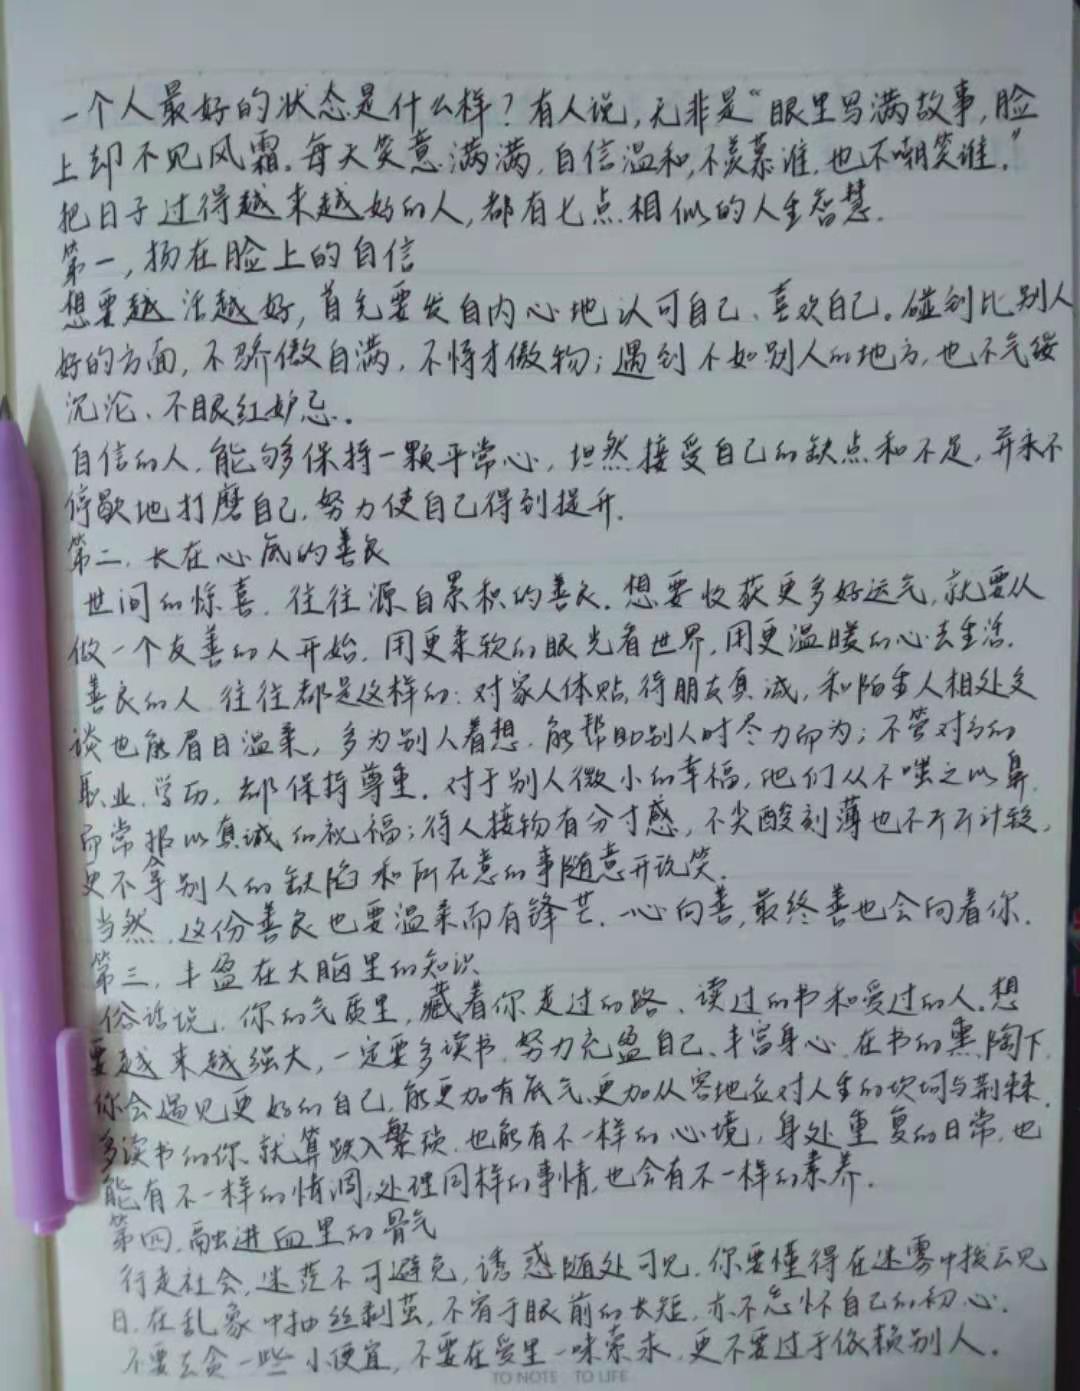 一个人最好的状态是什么样？有人说，无非是“眼里写满故事，脸
上却不见风霜。每天笑意满满，自信温和，不羡慕谁，也不嘲笑谁。”
把日子过得越来越好的人，都有七点相似的人生智慧。
第一，扬在脸上的自信
想要越活越好，首先要发自内心地认可自己、喜欢自己。碰到比别人
好的方面，不骄傲自满，不恃才傲物；遇到不如别人的地方，也不气馁
沉沦、不眼红妒忌。
自信的人，能够保持一颗平常心，坦然接受自己的缺点和不足，并永不
停歇地打磨自己，努力使自己得到提升。
第二，长在心底的善良
世间的惊喜，往往源自累积的善良。想要收获更多好运气，就要从
做一个友善的人开始，用更柔软的眼光看世界，用更温暖的心去生活。
善良的人，往往都是这样的：对家人体贴，待朋友真诚，和陌生人相处交
谈也能眉目温柔，多为别人着想，能帮助别人时尽力而为；不管对方的
职业、学历，都保持尊重。对于别人微小的幸福，他们从不嗤之以鼻，
而常报以真诚的祝福；待人接物有分寸感，不尖酸刻薄也不斤斤计较，
更不拿别人的缺陷和所在意的事随意开玩笑。
当然，这份善良也要温柔而有锋芒，一心向善，最终善也会向着你。
第三，丰盈在大脑里的知识
俗话说，你的气质里，藏着你走过的路、读过的书和爱过的人。想
要越来越强大，一定要多读书，努力充盈自己、丰富身心，在书的熏陶下，
你会遇见更好的自己，能更加有底气、更加从容地应对人生的坎坷与荆棘。
多读书的你，就算跌入繁琐，也能有不一样的心境，身处重复的日常，也
能有不一样的情调，处理同样的事情，也会有不一样的素养。
第四，融进血里的骨气
行走社会，迷茫不可避免，诱惑随处可见，你要懂得在迷雾中拨云见
日，在乱象中抽丝剥茧，不宥于眼前的长短，亦不忘怀自己的初心。
不要去贪一些小便宜，不要在爱里一味索求，更不要过于依赖别人。
TO NOTE TO LIFE